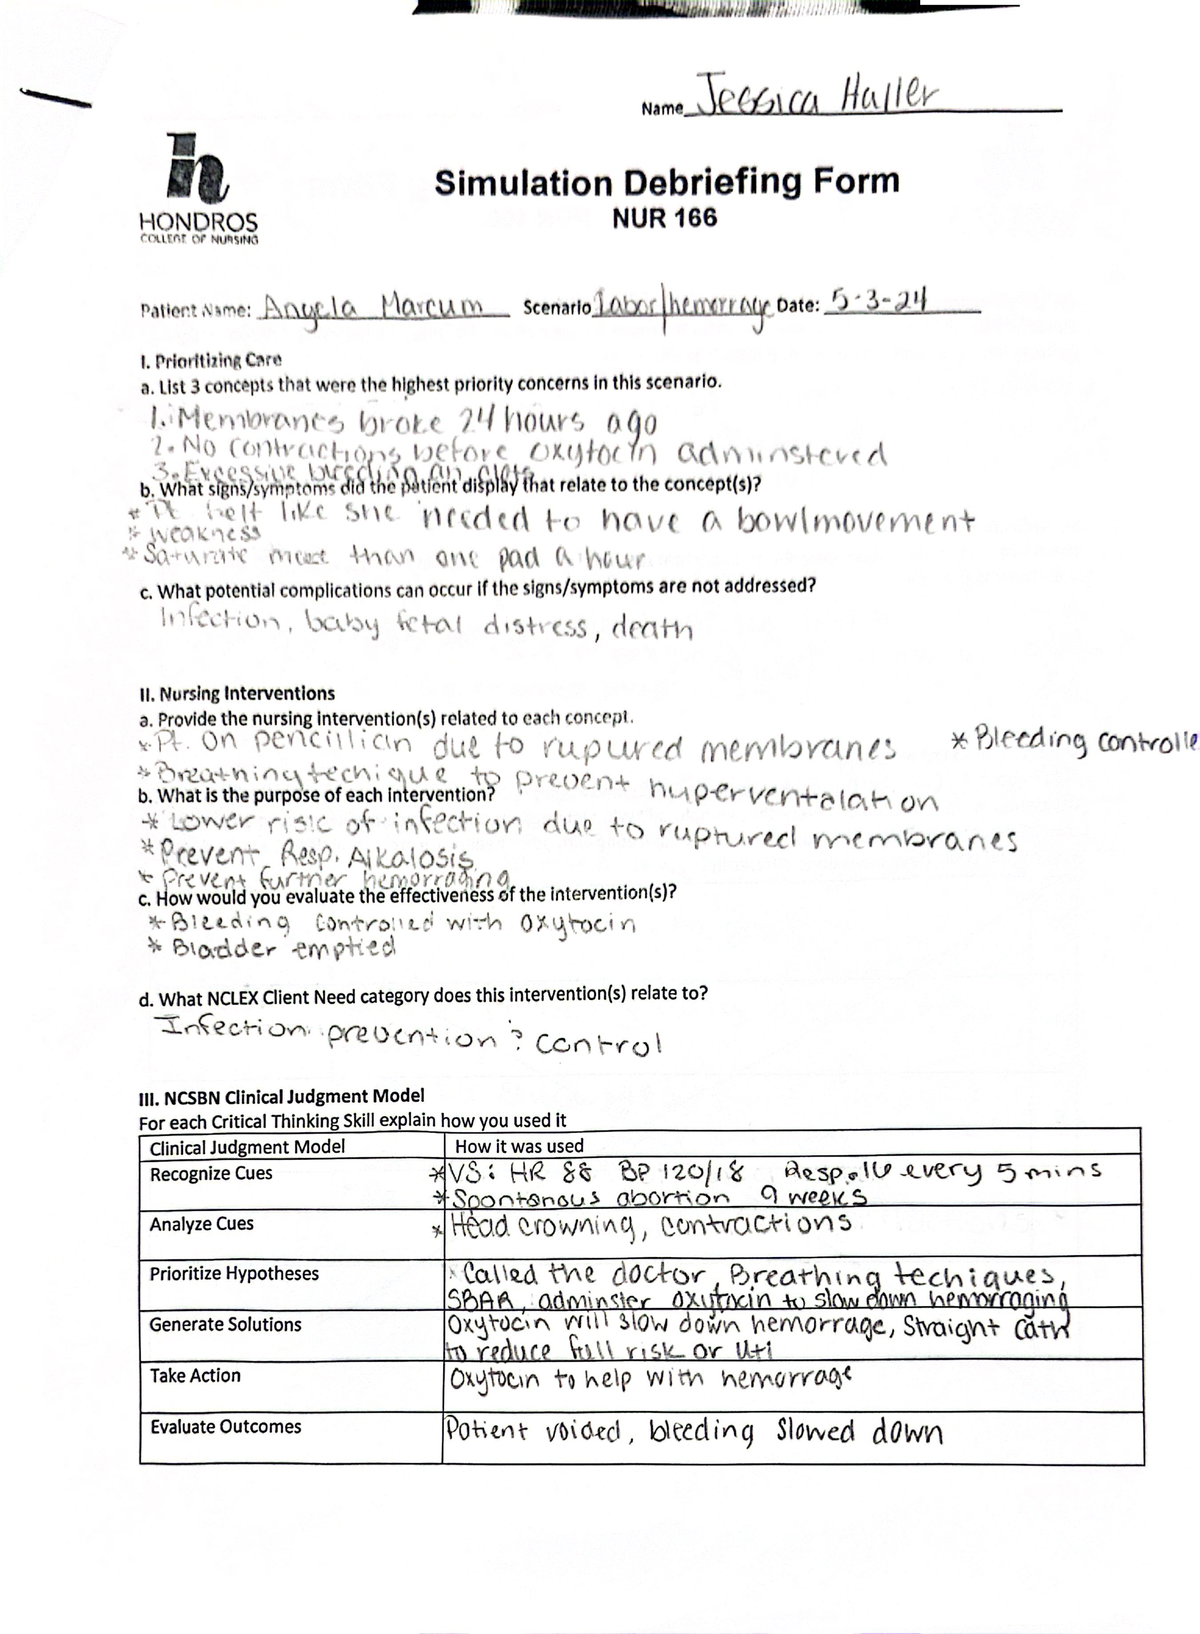 Name Jessica Haller
h
HONDROS
COLLEGE OF NURSING
Simulation Debriefing Form
NUR 166
Patient Name: Angela Marcum Scenario Labor/hemorrage Date: 5-3-24
I. Prioritizing Care
a. List 3 concepts that were the highest priority concerns in this scenario.
1. Membranes broke 24 hours ago
2. No contractions before oxytocin adminstered
3. Excessive bleeding an clots
b. What signs/symptoms did the patient display that relate to the concept(s)?
* Pt felt like she needed to have a bowlmovement
* weakness
* Saturate more than one pad a hour
c. What potential complications can occur if the signs/symptoms are not addressed?
Infection, baby fetal distress, death
II. Nursing Interventions
a. Provide the nursing intervention(s) related to each concept.
* Pt. on pencillian due to rupured membranes * Bleeding controlle
* Breathning techique to prevent hyperventalation
b. What is the purpose of each intervention?
* Lower risk of infection due to ruptured membranes
* Prevent Resp. Alkalosis
* Prevent further hemorraging
c. How would you evaluate the effectiveness of the intervention(s)?
* Bleeding controlled with oxytocin
* Bladder emptied
d. What NCLEX Client Need category does this intervention(s) relate to?
Infection prevention & control
III. NCSBN Clinical Judgment Model
For each Critical Thinking Skill explain how you used it
Clinical Judgment Model How it was used
Recognize Cues * VS: HR 88 BP 120/78 Resp. 16 every 5 mins
* Spontanous abortion 9 weeks
Analyze Cues * Head crowning, contractions
Prioritize Hypotheses * Called the doctor, Breathing techiques,
SBAR, adminster oxytocin to slow down hemorraging
Generate Solutions Oxytocin will slow down hemorrage, Straight cath
to reduce full risk or uti
Take Action Oxytocin to help with hemorrage
Evaluate Outcomes Patient voided, bleeding slowed down